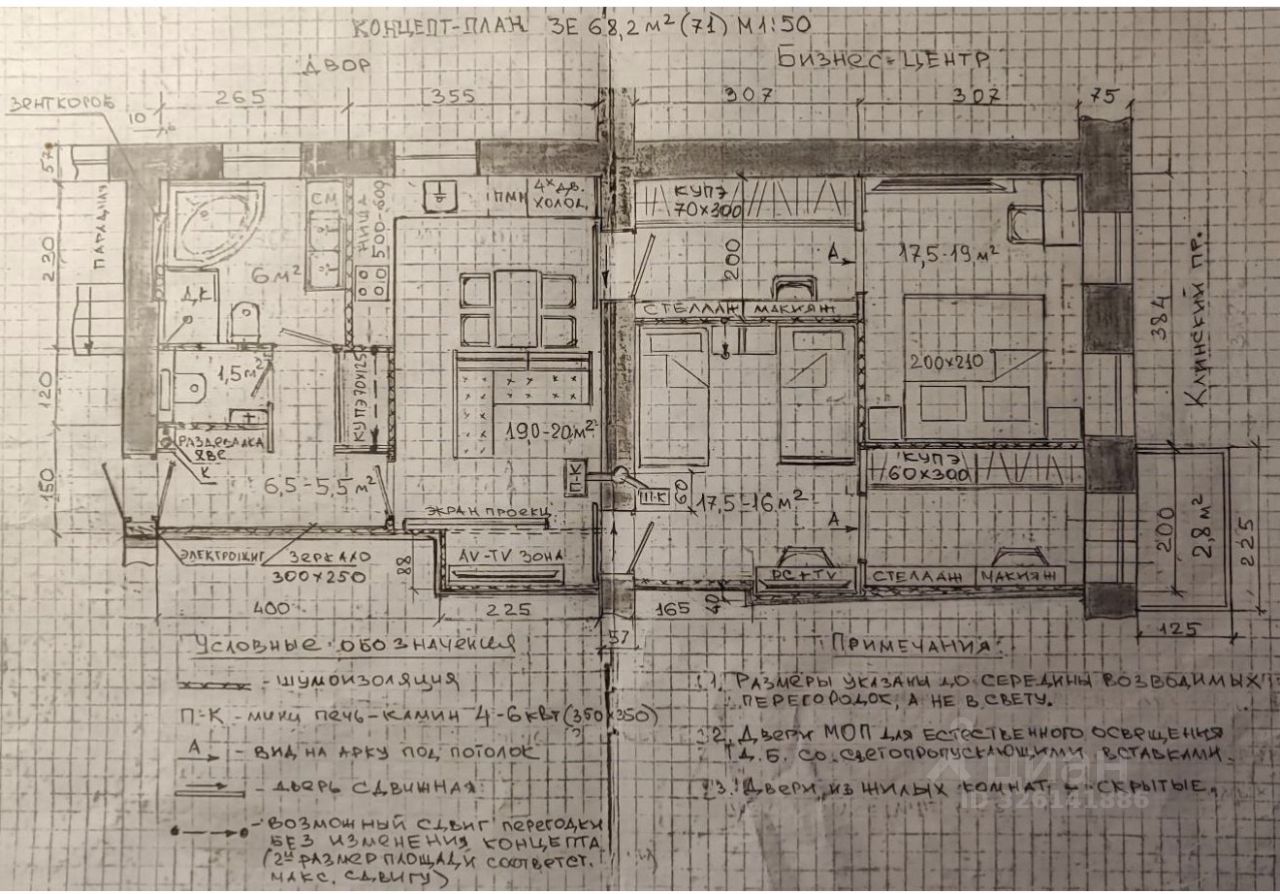 КОНЦЕПТ-ПЛАН 3Е 68,2 м² (71) М 1:50
ДВОР
БИЗНЕС-ЦЕНТР
ВЕНТКОРОБ
265
355
307
307
75
10
57
ПАРАДНАЯ
230
120
150
СМ
НИША
500-600
ПМН
4х дв.
ХОЛОД.
КУПЭ
70х300
200
А
17,5-19 м²
6 м²
Д.К
СТЕЛЛАЖ
МАКИЯЖ
200х210
КЛИНСКИЙ ПР.
384
1,5 м²
КУПЭ 70х125
РАЗДЕВАЛКА
К
190-20 м²
П-К
П-К
60
17,5-16 м²
КУПЭ
60х300
6,5-5,5 м²
А
ЭКРАН ПРОЕКЦ
AV-TV ЗОНА
PC+TV
СТЕЛЛАЖ
МАКИЯЖ
200
2,8 м²
225
ЗЕРКАЛО
300х250
88
400
225
165
40
57
125
УСЛОВНЫЕ ОБОЗНАЧЕНИЯ
- ШУМОИЗОЛЯЦИЯ
П-К - МИНИ ПЕЧЬ-КАМИН 4-6 кВт (350х350)
А - ВИД НА АРКУ ПОД ПОТОЛОК
- ДВЕРЬ СДВИЖНАЯ
- ВОЗМОЖНЫЙ СДВИГ ПЕРЕГОДКИ
БЕЗ ИЗМЕНЕНИЯ КОНЦЕПТА
(2й РАЗМЕР ПЛОЩАДИ СООТВЕТСТ.
МАКС. СДВИГУ)
ПРИМЕЧАНИЯ:
1. РАЗМЕРЫ УКАЗАНЫ ДО СЕРЕДИНЫ ВОЗВОДИМЫХ
ПЕРЕГОРОДОК, А НЕ В СВЕТУ.
2. ДВЕРИ МОП ДЛЯ ЕСТЕСТВЕННОГО ОСВЕЩЕНИЯ
Д.Б. СО СВЕТОПРОПУСКАЮЩИМИ ВСТАВКАМИ
3. ДВЕРИ ИЗ ЖИЛЫХ КОМНАТ - СКРЫТЫЕ.
циан
ID 326141886